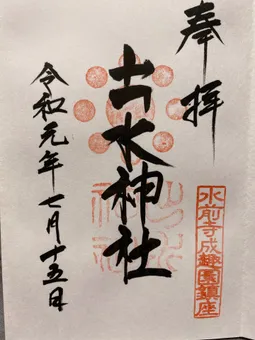 奉拝
水前寺成趣園鎮座
出水神社
令和元年七月十五日